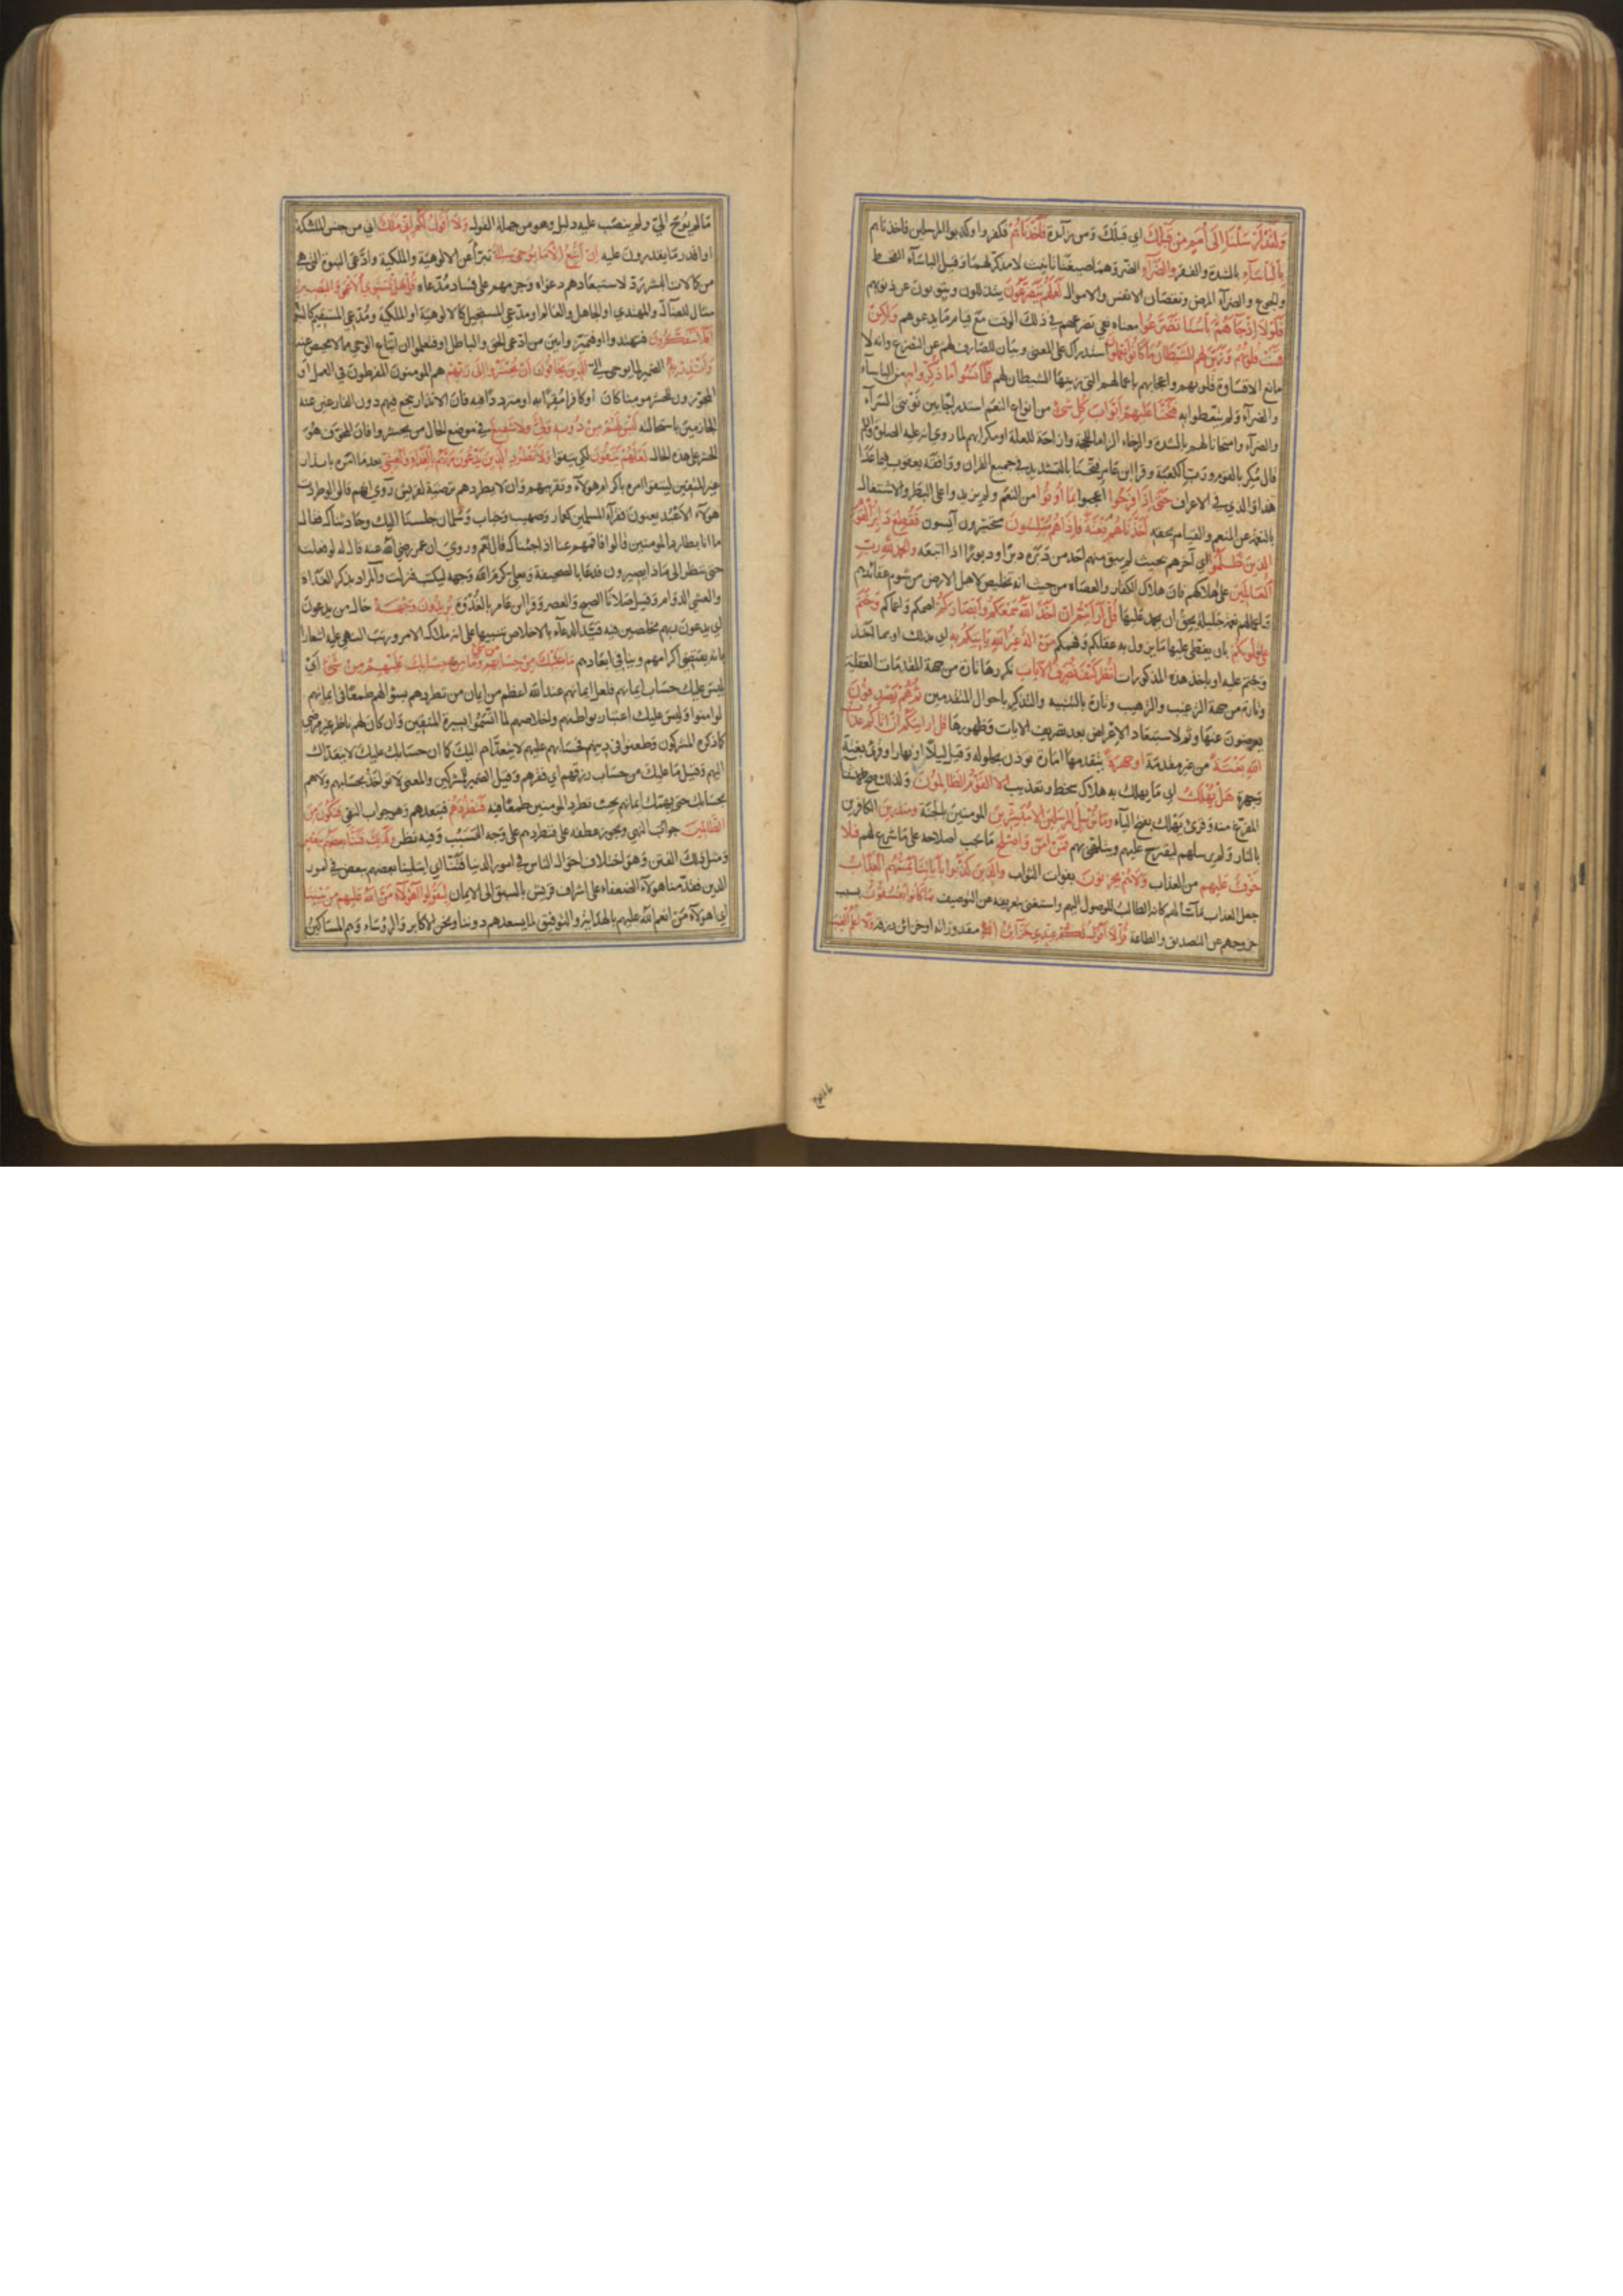 وَلَقَدْ أَرْسَلْنَا إِلَى أُمَمٍ مِنْ قَبْلِكَ اي قبلك ومن زآئدة فَأَخَذْنَاهُمْ فكفروا وكذبوا المرسلين فاخذناهم
بِالْبَأْسَآءِ بالشدة والفقر والضَّرَّآءِ الضر وهما صيغتا تانيث لا مذكر لهما وقيل الباسآء القحط
والجوع والضرآء المرض ونقصان الانفس والاموال لَعَلَّهُمْ يَتَضَرَّعُونَ يتذللون ويتوبون عن ذنوبهم
فَلَوْلَا إِذْ جَآءَهُمْ بَأْسُنَا تَضَرَّعُوا معناه نفي تضرعهم في ذلك الوقت مع قيام ما يدعوهم وَلَكِنْ
قَسَتْ قُلُوبُهُمْ وَزَيَّنَ لَهُمُ الشَّيْطَانُ مَا كَانُوا يَعْمَلُونَ استدراك على المعنى وبيان للصارف لهم عن التضرع وانه لا
مانع الا قساوة قلوبهم واعجابهم باعمالهم التي زينها الشيطان لهم فَلَمَّا نَسُوا مَا ذُكِّرُوا بِهِ من الباسآء
والضرآء ولم يتعظوا به فَتَحْنَا عَلَيْهِمْ أَبْوَابَ كُلِّ شَيْءٍ من انواع النعم استدراجا بين نوبتي السرآء
والضرآء وامتحانا لهم بالشدة والرخاء الزاما للحجة وازاحة للعلة او مكرا بهم لما روي انه عليه الصلوة والسلم
قال مكر بالقوم ورب الكعبة وقرا ابن عامر فتّحنا بالتشديد في جميع القران ووافقه يعقوب فيما عدا
هذا والذي في الاعراف حَتَّى إِذَا فَرِحُوا اعجبوا بِمَا أُوتُوا من النعم ولم يزيدوا على البطر والاشتغال
بالنعم عن المنعم والقيام بحقه أَخَذْنَاهُمْ بَغْتَةً فَإِذَا هُمْ مُبْلِسُونَ متحسرون آيسون فَقُطِعَ دَابِرُ الْقَوْمِ
الَّذِينَ ظَلَمُوا اي آخرهم بحيث لم يبق منهم احد من دبره دبرا ودبورا اذا اتبعه وَالْحَمْدُ لِلَّهِ رَبِّ
الْعَالَمِينَ على اهلاكهم فان هلاك الكفار والعصاة من حيث انه تخليص لاهل الارض من شوم عقائدهم
واعمالهم نعمة جليلة يحق ان يحمد عليها قُلْ أَرَأَيْتُمْ إِنْ أَخَذَ اللَّهُ سَمْعَكُمْ وَأَبْصَارَكُمْ اصمكم واعماكم وَخَتَمَ
عَلَى قُلُوبِكُمْ بان يغطي عليها ما يزول به عقلكم وفهمكم مَنْ إِلَهٌ غَيْرُ اللَّهِ يَأْتِيكُمْ بِهِ اي بذلك او بما اخذ
وختم عليه او باخذ هذه المذكورات انْظُرْ كَيْفَ نُصَرِّفُ الْآيَاتِ نكررها تارة من جهة المقدمات العقلية
وتارة من جهة الترغيب والترهيب وتارة بالتنبيه والتذكير باحوال المتقدمين ثُمَّ هُمْ يَصْدِفُونَ
يعرضون عنها وثم لاستبعاد الاعراض بعد تصريف الايات وظهورها قُلْ أَرَأَيْتَكُمْ إِنْ أَتَاكُمْ عَذَابُ
اللَّهِ بَغْتَةً من غير مقدمة أَوْ جَهْرَةً بتقدمها امارة توذن بحلوله وقيل ليلا او نهارا وقرئ بغتة
وجهرة هَلْ يُهْلَكُ اي ما يهلك به هلاك سخط وتعذيب إِلَّا الْقَوْمُ الظَّالِمُونَ ولذلك صح الاستثنا
المفرغ منه وقرئ يهلك بفتح اليآء وَمَا نُرْسِلُ الْمُرْسَلِينَ إِلَّا مُبَشِّرِينَ المومنين بالجنة وَمُنْذِرِينَ الكافرين
بالنار ولم نرسلهم ليقترح عليهم ويتلهى بهم فَمَنْ آمَنَ وَأَصْلَحَ ما يجب اصلاحه على ما شرع لهم فَلَا
خَوْفٌ عَلَيْهِمْ من العذاب وَلَا هُمْ يَحْزَنُونَ بفوات الثواب وَالَّذِينَ كَذَّبُوا بِآيَاتِنَا يَمَسُّهُمُ الْعَذَابُ
جعل العذاب ماسا لهم كانه الطالب للوصول اليهم واستغنى بتعريفه عن التوصيف بِمَا كَانُوا يَفْسُقُونَ بسبب
خروجهم عن التصديق والطاعة قُلْ لَا أَقُولُ لَكُمْ عِنْدِي خَزَائِنُ اللَّهِ مقدوراته او خزائن رزقه وَلَا أَعْلَمُ الْغَيْبَ
ما لم يوح اليّ ولم ينصب عليه دليل وهو من جملة المقول وَلَا أَقُولُ لَكُمْ إِنِّي مَلَكٌ اي من جنس الملئكة
او اقدر ما يقدرون عليه إِنْ أَتَّبِعُ إِلَّا مَا يُوحَى إِلَيَّ تبرأ عن الالوهية والملكية وادعى النبوة التي هي
من كمالات البشر ردّ لاستبعادهم دعواه وجزمهم على فساد مدعاه قُلْ هَلْ يَسْتَوِي الْأَعْمَى وَالْبَصِيرُ
مثال للضال والمهتدي او الجاهل والعالم او مدعي المستحيل كالالوهية او الملكية ومدعي المستقيم كالنبوة
أَفَلَا تَتَفَكَّرُونَ فتهتدوا او فتميزوا بين من ادعى الحق والباطل او فتعلموا ان اتباع الوحي مما لا محيص عنه
وَأَنْذِرْ بِهِ الضمير لما يوحى اليّ الَّذِينَ يَخَافُونَ أَنْ يُحْشَرُوا إِلَى رَبِّهِمْ هم المومنون المفرطون في العمل او
المجوزون للحشر مومنا كان او كافرا مقرا به او مترددا فيه فان الانذار ينجع فيهم دون الفارغين عنه
الجازمين باستحالته لَيْسَ لَهُمْ مِنْ دُونِهِ وَلِيٌّ وَلَا شَفِيعٌ في موضع الحال من يحشروا فان المخوف هو
الحشر على هذه الحال لَعَلَّهُمْ يَتَّقُونَ لكي يتقوا وَلَا تَطْرُدِ الَّذِينَ يَدْعُونَ رَبَّهُمْ بِالْغَدَاةِ وَالْعَشِيِّ بعد ما امره بانذار
غير المتقين ليتقوا امره باكرام هولآء وتقريبهم وان لا يطردهم ترضية لقريش روي انهم قالوا لو طردت
هولآء الاعبد يعنون فقرآء المسلمين كعمار وصهيب وخباب وسلمان جلسنا اليك وحادثناك فقال
ما انا بطارد المومنين قالوا فاقمهم عنا اذا جئناك قال نعم وروي ان عمر رضي الله عنه قال له لو فعلت
حتى ننظر الى ماذا يصيرون فدعا بالصحيفة وبعلي كرم الله وجهه ليكتب فنزلت والمراد بذكر الغداة
والعشي الدوام وقيل صلاتا الصبح والعصر وقرا ابن عامر بالغُدْوَة يُرِيدُونَ وَجْهَهُ حال من يدعون
اي يدعون ربهم مخلصين فيه قيد الدعاء بالاخلاص تنبيها على انه ملاك الامر ورتب النهي عليه اشعارا
بانه يقتضي اكرامهم وينافي ابعادهم مَا عَلَيْكَ مِنْ حِسَابِهِمْ مِنْ شَيْءٍ وَمَا مِنْ حِسَابِكَ عَلَيْهِمْ مِنْ شَيْءٍ اي
ليس عليك حساب ايمانهم فلعل ايمانهم عند الله اعظم من ايمان من تطردهم بسؤالهم طمعا في ايمانهم
لو امنوا وليس عليك اعتبار بواطنهم واخلاصهم لما اتسموا بسيرة المتقين وان كان لهم باطن غير مرضي
كما ذكره المشركون وطعنوا في دينهم فحسابهم عليهم لا يتعداهم اليك كما ان حسابك عليك لا يتعداك
اليهم وقيل ما عليك من حساب رزقهم اي فقرهم وقيل الضمير للمشركين والمعنى لا تؤاخذ بحسابهم ولا هم
بحسابك حتى يهمك ايمانهم بحيث تطرد المومنين طمعا فيه فَتَطْرُدَهُمْ فتبعدهم وهو جواب النفي فَتَكُونَ مِنَ
الظَّالِمِينَ جواب النهي ويجوز عطفه على فتطردهم على وجه التسبب وفيه نظر وَكَذَلِكَ فَتَنَّا بَعْضَهُمْ بِبَعْضٍ
ومثل ذلك الفتن وهو اختلاف احوال الناس في امور الدنيا فتنّا اي ابتلينا بعضهم ببعض في امر
الدين فقدمنا هولآء الضعفاء على اشراف قريش بالسبق الى الايمان لِيَقُولُوا أَهَؤُلَاءِ مَنَّ اللَّهُ عَلَيْهِمْ مِنْ بَيْنِنَا
اي اهولآء من انعم الله عليهم بالهداية والتوفيق لما يسعدهم دوننا ونحن الاكابر والرؤساء وهم المساكين